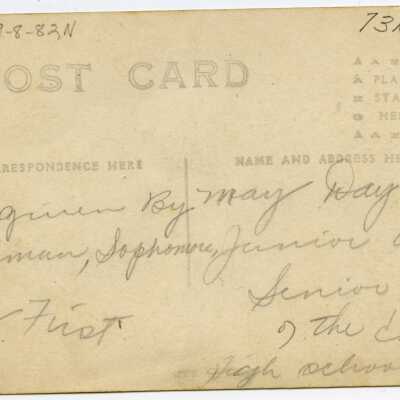 9-8-82N
73N
POST CARD
PLA
STA
HE
RRESPONDENCE HERE
NAME AND ADDRESS HE
given By May Day
man, Sophomore, Junior
Senior
First
of the
High school